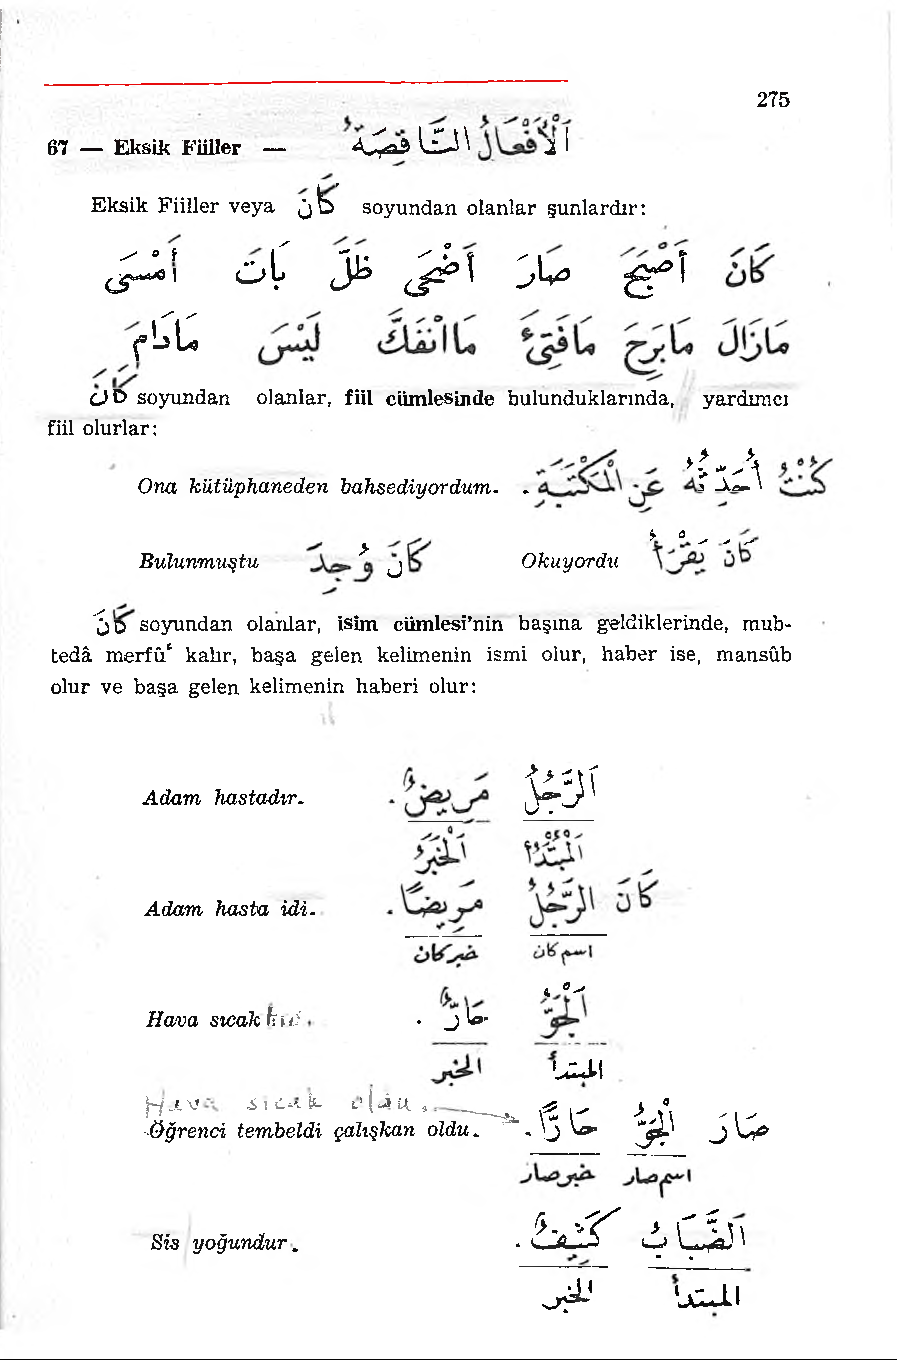 275
67 — Eksik Fiiller — اَلْأَفْعَالُ النَّاقِصَةُ
Eksik Fiiller veya كَانَ soyundan olanlar şunlardır:
كَانَ أَصْبَحَ صَارَ أَضْحَى ظَلَّ بَاتَ أَمْسَى
مَازَالَ مَابَرِحَ مَافَتِئَ مَاانْفَكَّ لَيْسَ مَادَامَ
كَانَ soyundan olanlar, fiil cümlesinde bulunduklarında, yardımcı
fiil olurlar:
Ona kütüphaneden bahsediyordum. كُنْتُ أُحَدِّثُهُ عَنِ الْمَكْتَبَةِ.
Bulunmuştu كَانَ وُجِدَ Okuyordu كَانَ يَقْرَأُ
كَانَ soyundan olanlar, isim cümlesi'nin başına geldiklerinde, mub-
tedâ merfûʿ kalır, başa gelen kelimenin ismi olur, haber ise, mansûb
olur ve başa gelen kelimenin haberi olur:
Adam hastadır. اَلرَّجُلُ مَرِيضٌ.
اَلْمُبْتَدَأُ اَلْخَبَرُ
Adam hasta idi. كَانَ الرَّجُلُ مَرِيضًا.
اسم كان خبر كان
Hava sıcaktır. اَلْجَوُّ حَارٌّ.
المبتدأ الخبر
Hava sıcak oldu.
Öğrenci tembeldi çalışkan oldu. صَارَ الْجَوُّ حَارًّا.
اسم صار خبر صار
Sis yoğundur. اَلضَّبَابُ كَثِيفٌ.
المبتدأ الخبر